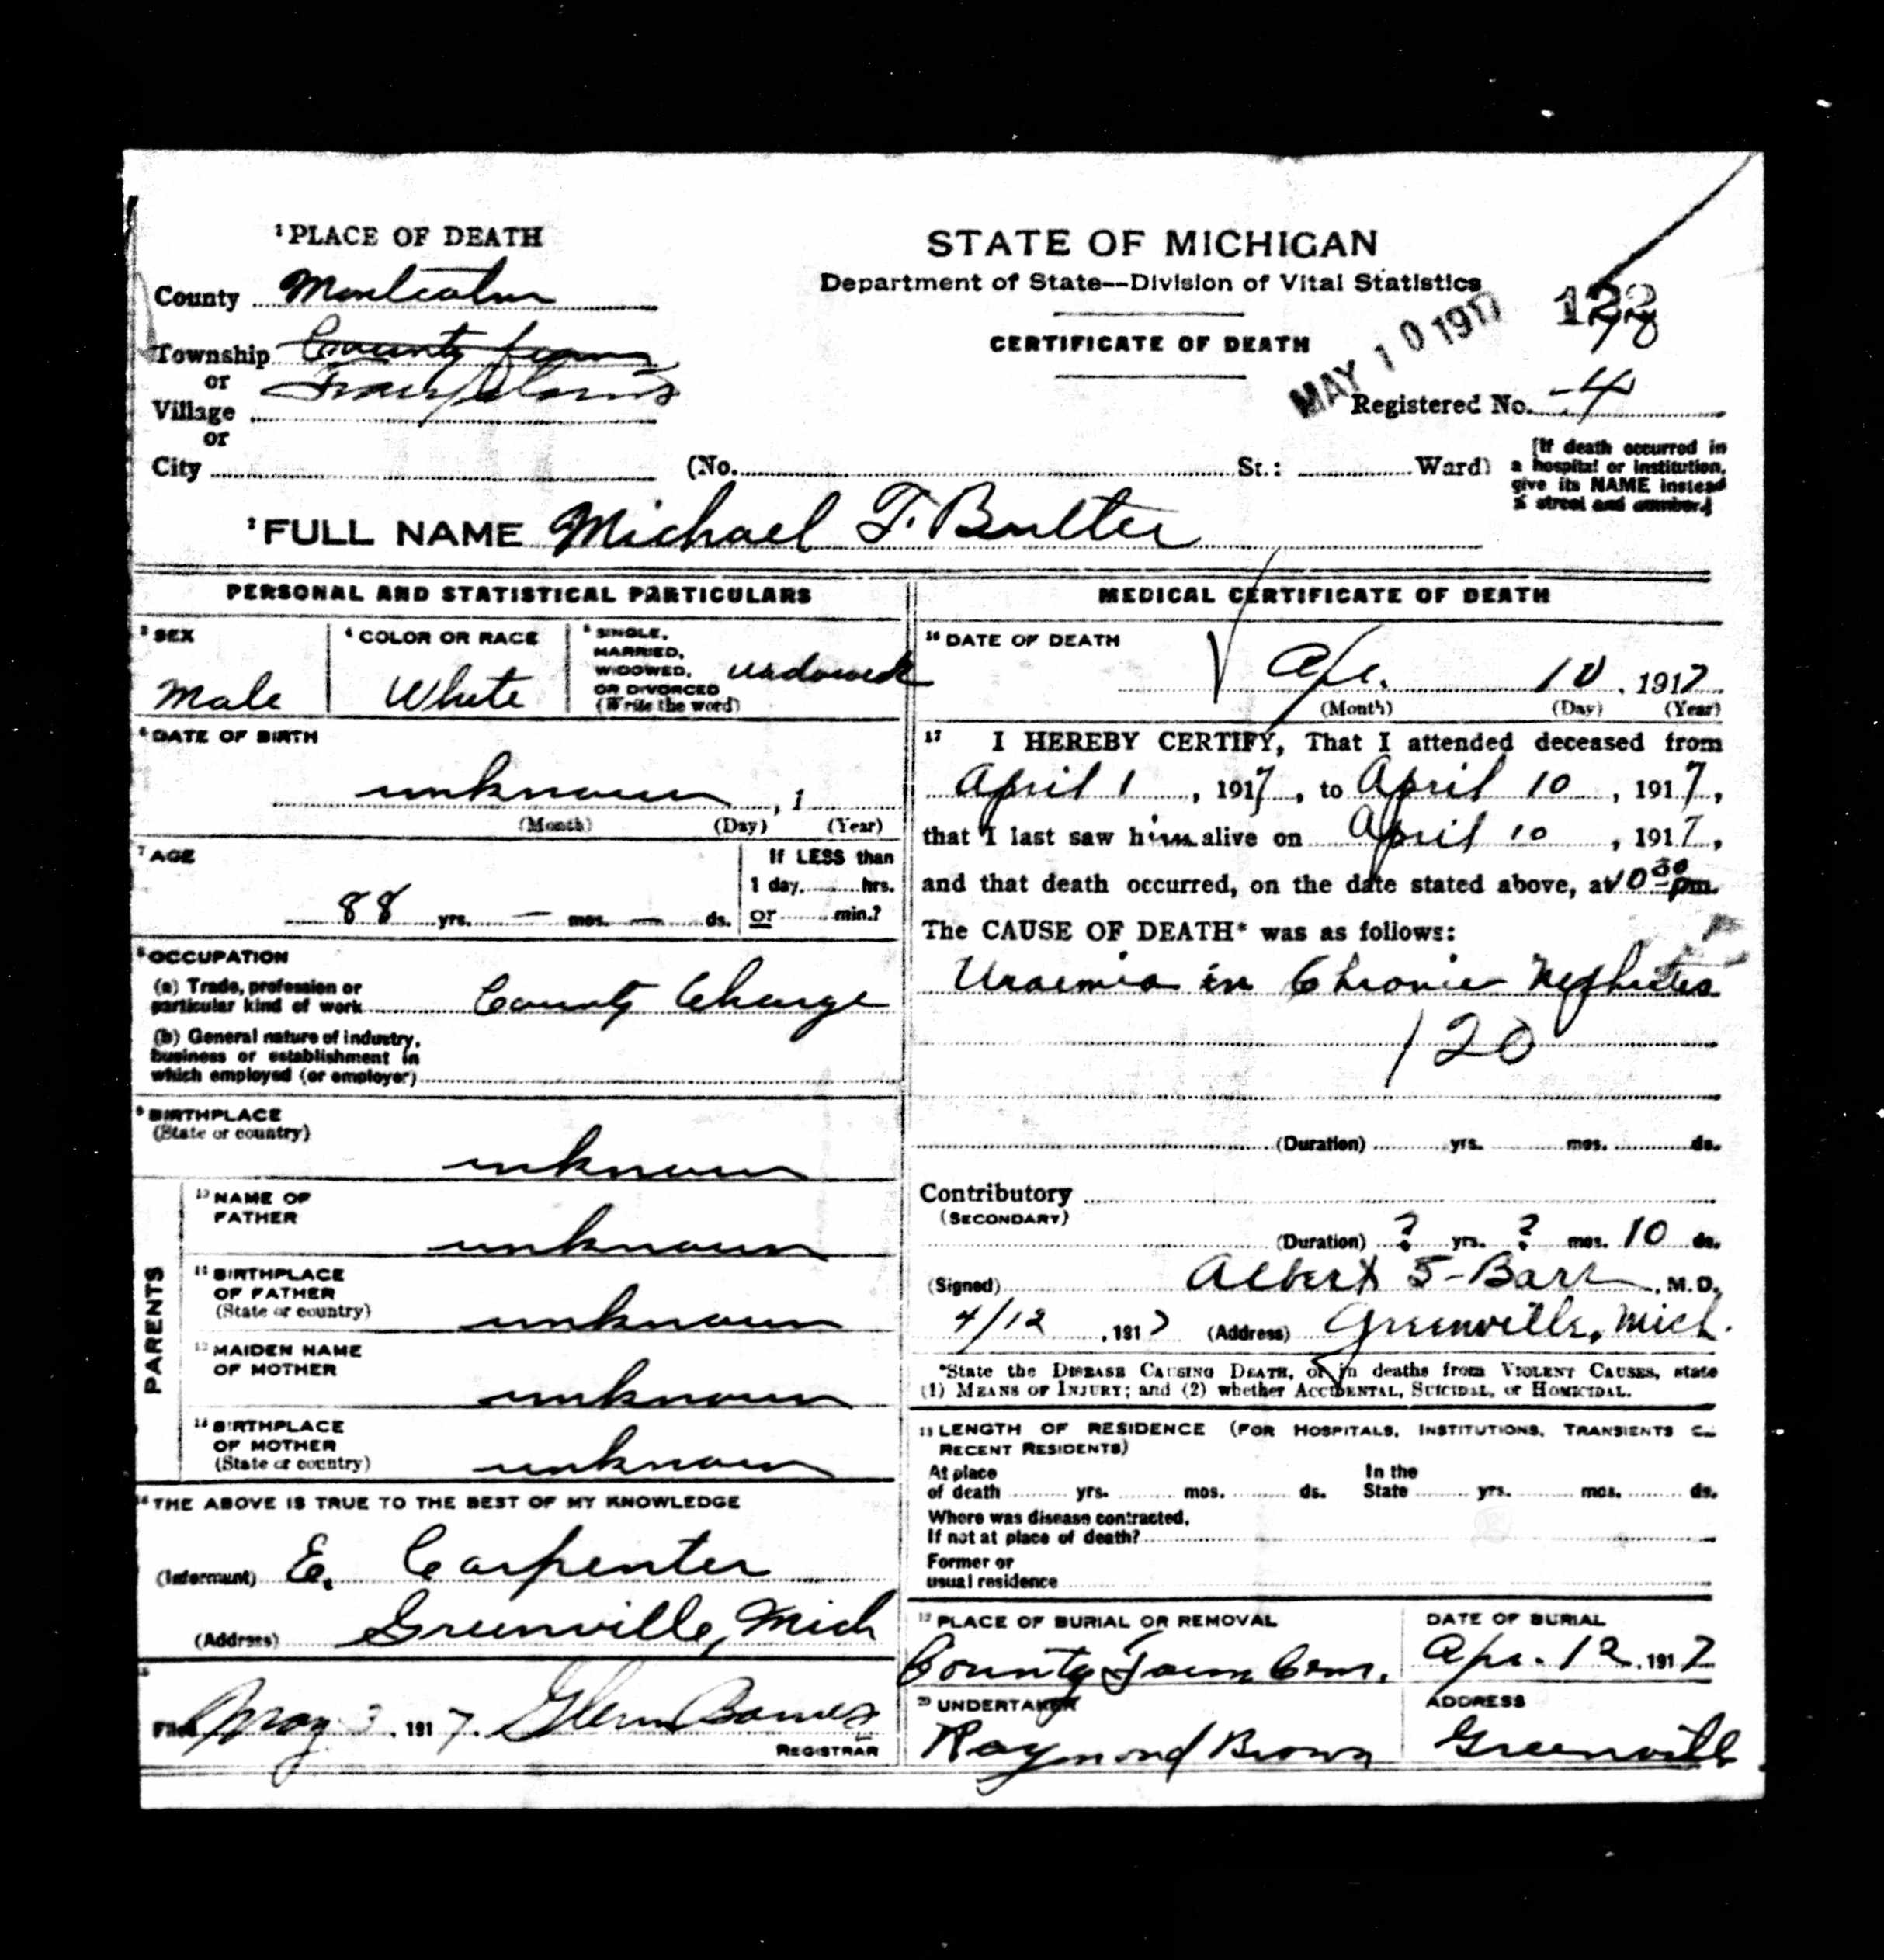 ¹PLACE OF DEATH
County Montcalm
Township County farm
or
Village
or
City (No. St.: Ward)
STATE OF MICHIGAN
Department of State--Division of Vital Statistics
CERTIFICATE OF DEATH
MAY 10 1917
Registered No. 4
[If death occurred in
a hospital or institution,
give its NAME instead
street and number.]
²FULL NAME Michael F. Butler
PERSONAL AND STATISTICAL PARTICULARS
³SEX
Male
⁴COLOR OR RACE
White
⁵SINGLE,
MARRIED,
WIDOWED,
OR DIVORCED
(Write the word)
widowed
⁶DATE OF BIRTH
unknown , 1
(Month) (Day) (Year)
⁷AGE
88 yrs. — mos. — ds.
If LESS than
1 day, hrs.
or min.?
⁸OCCUPATION
(a) Trade, profession or
particular kind of work County Charge
(b) General nature of industry,
business or establishment in
which employed (or employer)
⁹BIRTHPLACE
(State or country)
unknown
PARENTS
¹⁰NAME OF
FATHER
unknown
¹¹BIRTHPLACE
OF FATHER
(State or country)
unknown
¹²MAIDEN NAME
OF MOTHER
unknown
¹³BIRTHPLACE
OF MOTHER
(State or country)
unknown
¹⁴THE ABOVE IS TRUE TO THE BEST OF MY KNOWLEDGE
(Informant) E. Carpenter
(Address) Greenville, Mich
¹⁵
Filed May 3, 1917. Glenn
REGISTRAR
MEDICAL CERTIFICATE OF DEATH
¹⁶DATE OF DEATH
Apr. 10, 1917
(Month) (Day) (Year)
¹⁷ I HEREBY CERTIFY, That I attended deceased from
April 1, 1917, to April 10, 1917,
that I last saw him alive on April 10, 1917,
and that death occurred, on the date stated above, at 10 30 pm.
The CAUSE OF DEATH* was as follows:
Uraemia in Chronic Nephritis
120
(Duration) yrs. mos. ds.
Contributory
(SECONDARY)
(Duration) ? yrs. ? mos. 10 ds.
(Signed) Albert , M.D.
4/12, 1917 (Address) Greenville, Mich.
*State the DISEASE CAUSING DEATH, or in deaths from VIOLENT CAUSES, state
(1) MEANS OF INJURY; and (2) whether ACCIDENTAL, SUICIDAL, or HOMICIDAL.
¹⁸LENGTH OF RESIDENCE (FOR HOSPITALS, INSTITUTIONS, TRANSIENTS
RECENT RESIDENTS)
At place
of death yrs. mos. ds.
In the
State yrs. mos. ds.
Where was disease contracted,
If not at place of death?
Former or
usual residence
¹⁹PLACE OF BURIAL OR REMOVAL
County Farm Cem.
DATE OF BURIAL
Apr. 12, 1917
²⁰UNDERTAKER
Raymond Brown
ADDRESS
Greenville